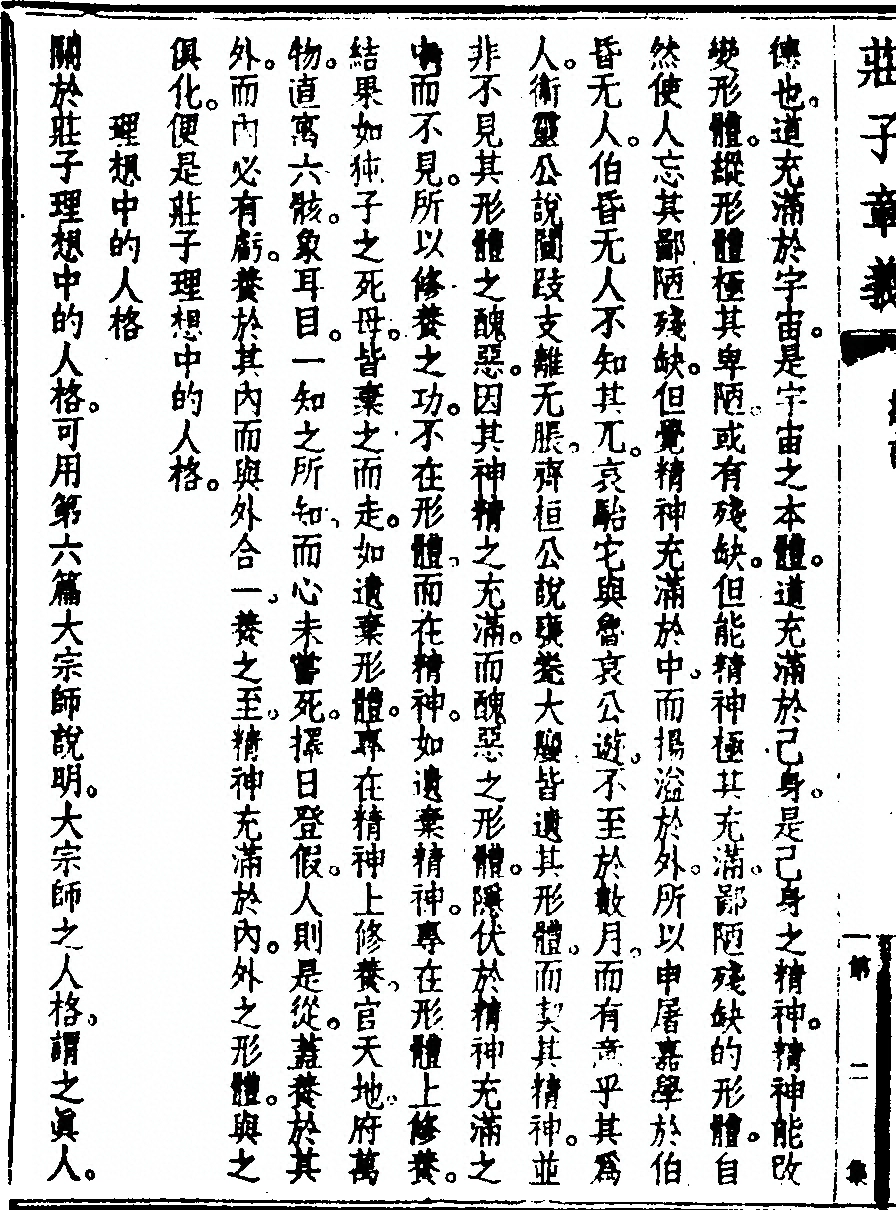 莊子章義
第二集
德也。道充滿於宇宙。是宇宙之本體。道充滿於己身。是己身之精神。精神能改
變形體。縱形體極其卑陋。或有殘缺。但能精神極其充滿。鄙陋殘缺的形體。自
然使人忘其鄙陋殘缺。但覺精神充滿於中。而揚溢於外。所以申屠嘉學於伯
昏无人。伯昏无人不知其兀。哀駘它與魯哀公遊。不至於數月。而有意乎其為
人。衛靈公說闉跂支離无脤。齊桓公說甕㼜大癭皆遺其形體。而契其精神。並
非不見其形體之醜惡。因其神精之充滿。而醜惡之形體。隱伏於精神充滿之
中而不見。所以修養之功。不在形體。而在精神。如遺棄精神。專在形體上修養。
結果如㹠子之死母。皆棄之而走。如遺棄形體。專在精神上修養。官天地。府萬
物。直寓六骸。象耳目。一知之所知、而心未嘗死。擇日登假。人則是從。蓋養於其
外。而內必有虧。養於其內而與外合一。養之至。精神充滿於內。外之形體。與之
俱化。便是莊子理想中的人格。
理想中的人格
關於莊子理想中的人格。可用第六篇大宗師說明。大宗師之人格。謂之眞人。